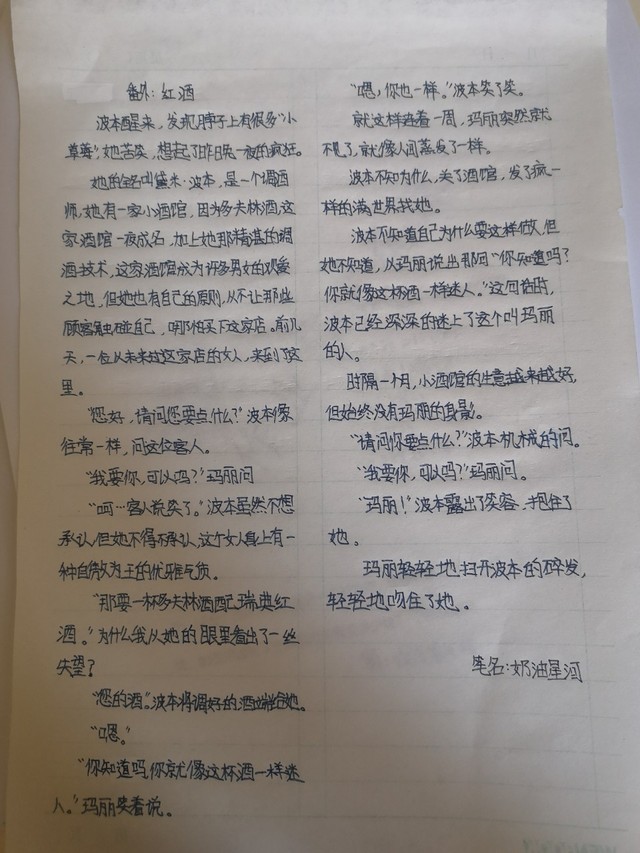 番外:红酒
波本醒来,发现脖子上有很多“小
草莓”,她苦笑,想起了昨晚一夜的疯狂。
她的全名叫黛米·波本,是一个调酒
师,她有一家小酒馆,因为多夫林酒,这
家酒馆一夜成名,加上她那精湛的调
酒技术,这家酒馆成为许多男女的欢爱
之地,但她也有自己的原则,从不让那些
顾客触碰自己,哪怕买下这家店。前几
天,一位从未来过这家店的女人,来到了这
里。
“您好,请问您要点什么?”波本像
往常一样,问这位客人。
“我要你,可以吗?”玛丽问
“呵…客人说笑了。”波本虽然不想
承认,但她不得不承认,这个女人身上有一
种自傲为王的优雅气质。
“那要一杯多夫林酒配瑞典红
酒。”为什么我从她的眼里看出了一丝
失望?
“您的酒。”波本将调好的酒端给她。
“嗯。”
“你知道吗,你就像这杯酒一样迷
人。”玛丽笑着说。
“嗯,你也一样。”波本笑了笑。
就这样连着一周,玛丽突然就
不见了,就像人间蒸发了一样。
波本不知为什么,关了酒馆,发了疯一
样的满世界找她。
波本不知道自己为什么要这样做,但
她不知道,从玛丽说出那句“你知道吗?
你就像这杯酒一样迷人。”这句话时,
波本已经深深的迷上了这个叫玛丽
的人。
时隔一个月,小酒馆的生意越来越好,
但始终没有玛丽的身影。
“请问你要点什么?”波本机械的问。
“我要你,可以吗?”玛丽问。
“玛丽!”波本露出了笑容,抱住了
她。
玛丽轻轻地扫开波本的碎发,
轻轻地吻住了她。
笔名:奶油星河